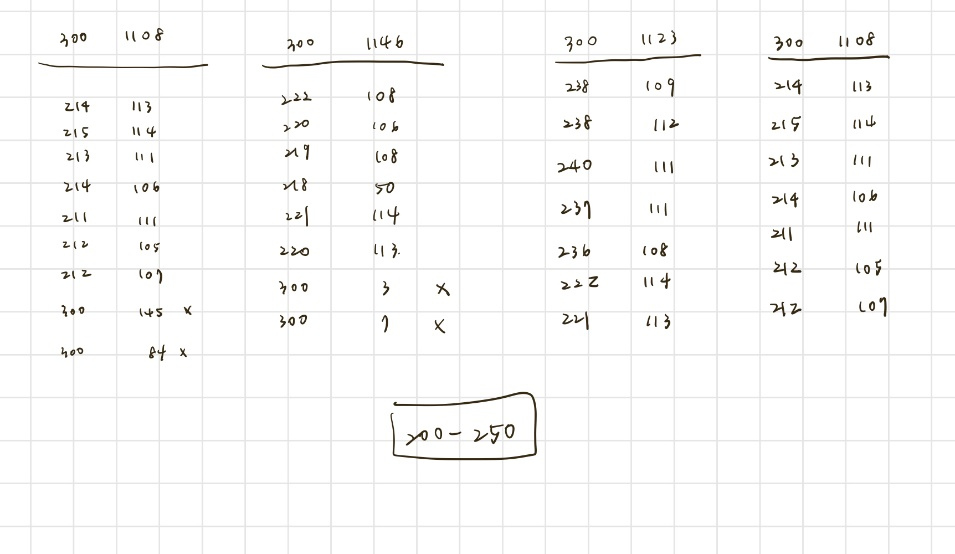 300 1108
214 113
215 114
213 111
214 106
211 111
212 105
212 107
300 145 x
300 84 x
300 1146
222 108
220 106
219 108
218 50
221 114
220 113.
300 3 x
300 7 x
300 1123
238 109
238 112
240 111
237 111
236 108
222 114
221 113
300 1108
214 113
215 114
213 111
214 106
211 111
212 105
212 107
200 - 250